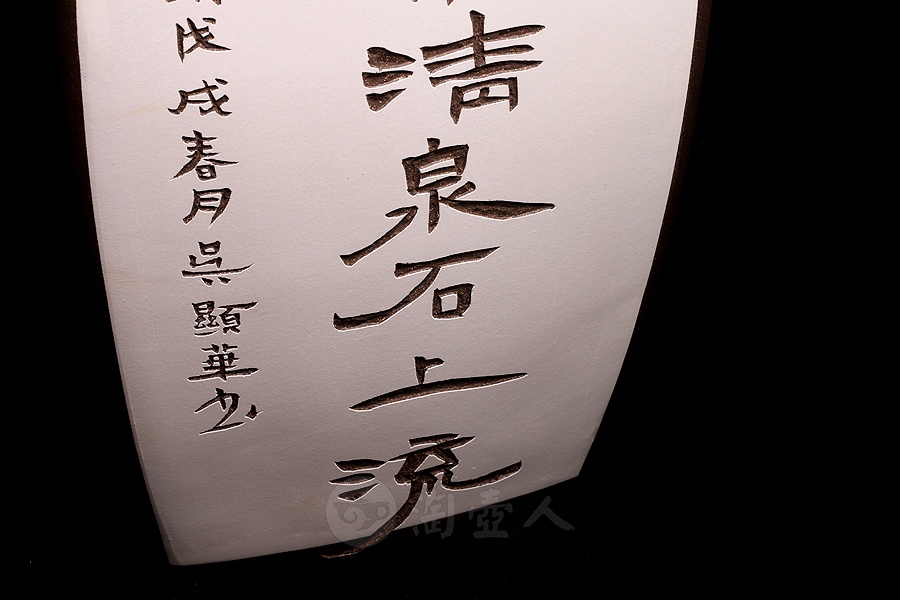 清泉石上流
戊戌春月吳顯華书
陶壺人